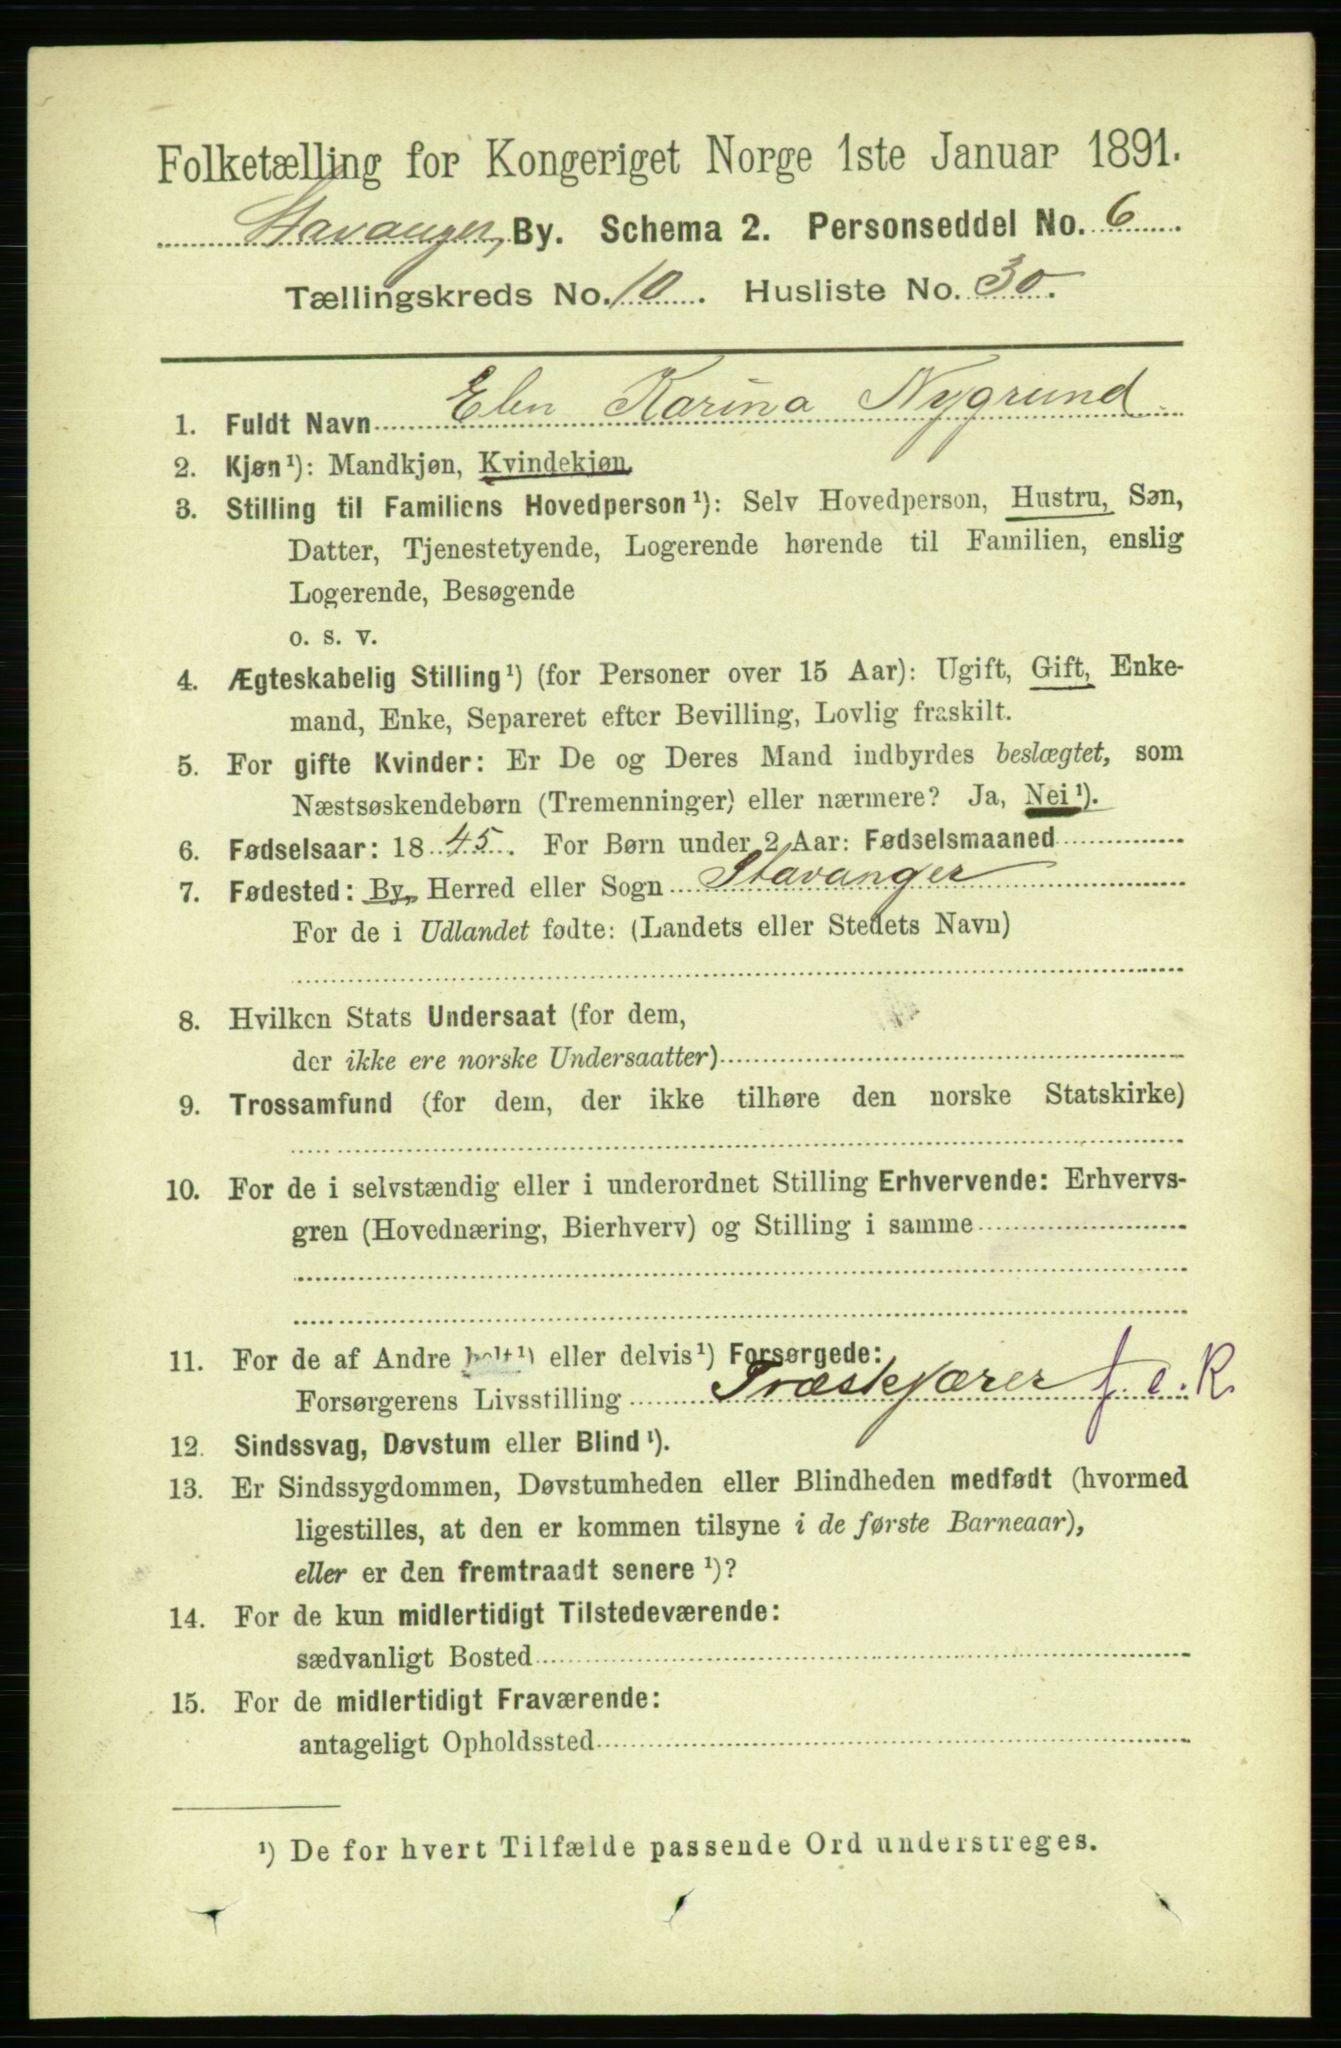 Folketælling for Kongeriget Norge 1ste Januar 1891.
Stavanger, By. Schema 2. Personseddel No. 6
Tællingskreds No. 10. Husliste No. 30.
1. Fuldt Navn Elen Karina Nygrund
2. Kjøn¹): Mandkjøn, Kvindekjøn.
3. Stilling til Familiens Hovedperson¹): Selv Hovedperson, Hustru, Søn,
Datter, Tjenestetyende, Logerende hørende til Familien, enslig
Logerende, Besøgende
o. s. v.
4. Ægteskabelig Stilling¹) (for Personer over 15 Aar): Ugift, Gift, Enke-
mand, Enke, Separeret efter Bevilling, Lovlig fraskilt.
5. For gifte Kvinder: Er De og Deres Mand indbyrdes beslægtet, som
Næstsøskendebørn (Tremenninger) eller nærmere? Ja, Nei¹).
6. Fødselsaar: 1845. For Børn under 2 Aar: Fødselsmaaned
7. Fødested: By, Herred eller Sogn Stavanger
For de i Udlandet fødte: (Landets eller Stedets Navn)
8. Hvilken Stats Undersaat (for dem,
der ikke ere norske Undersaatter)
9. Trossamfund (for dem, der ikke tilhøre den norske Statskirke)
10. For de i selvstændig eller i underordnet Stilling Erhvervende: Erhvervs-
gren (Hovednæring, Bierhverv) og Stilling i samme
11. For de af Andre helt¹) eller delvis¹) Forsørgede:
Forsørgerens Livsstilling Træskjærer f. e. R.
12. Sindssvag, Døvstum eller Blind¹).
13. Er Sindssygdommen, Døvstumheden eller Blindheden medfødt (hvormed
ligestilles, at den er kommen tilsyne i de første Barneaar),
eller er den fremtraadt senere ¹)?
14. For de kun midlertidigt Tilstedeværende:
sædvanligt Bosted
15. For de midlertidigt Fraværende:
antageligt Opholdssted
¹) De for hvert Tilfælde passende Ord understreges.